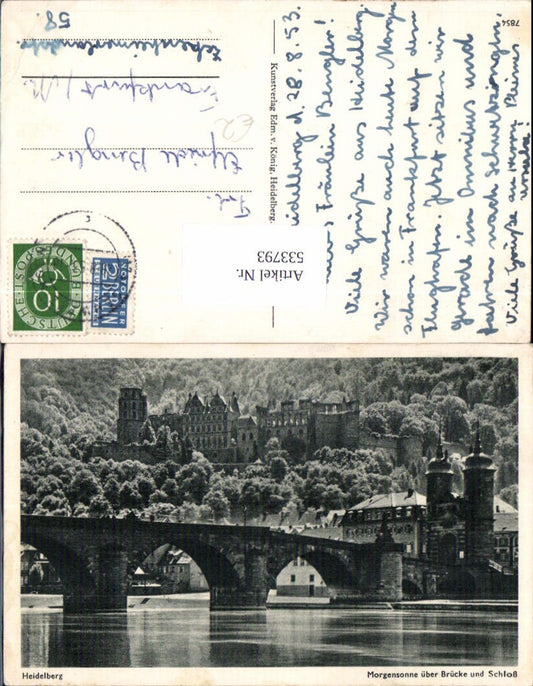 Heidelberg d. 28.8.53.
Fräulein Bengler!
Viele Grüße aus Heidelberg
Wir waren auch heute Morgen
schon in Frankfurt auf dem
Flughafen. Jetzt sitzen wir
gerade im Omnibus und
fahren nach Schwetzingen
Viele Grüße an Herrn
7854
Kunstverlag Edm. v. König, Heidelberg.
Frl.
Elfriede Bengler
Frankfurt / M.
58
€2
Artikel Nr.
533793
10
DEUTSCHE BUNDESPOST
NOTOPFER
2 BERLIN
STEUERMARKE
Heidelberg
Morgensonne über Brücke und Schloß